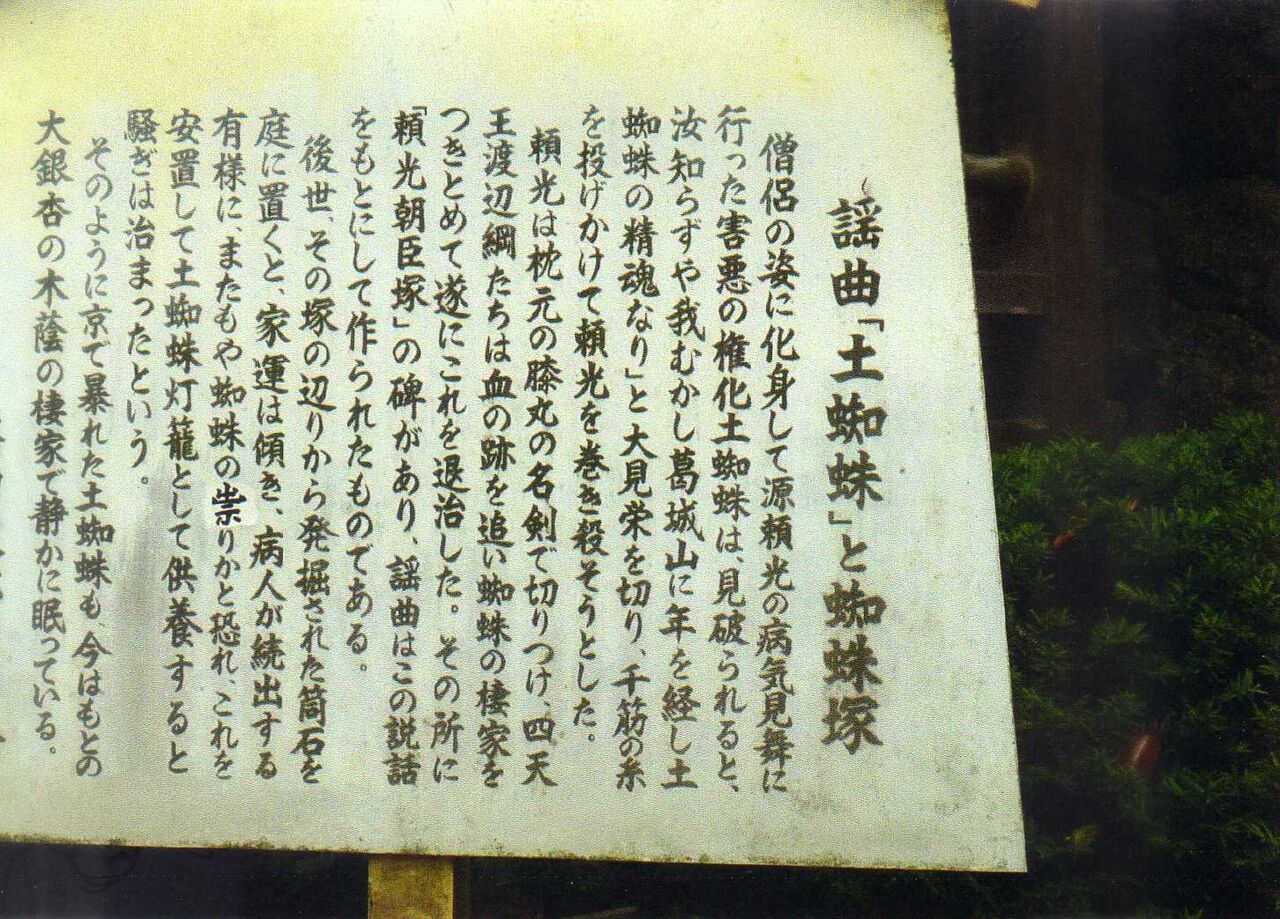 謡曲「土蜘蛛」と蜘蛛塚
僧侶の姿に化身して源頼光の病気見舞に
行った害悪の権化土蜘蛛は、見破られると、
汝知らずや我むかし葛城山に年を経し土
蜘蛛の精魂なり」と大見栄を切り、千筋の糸
を投げかけて頼光を巻き殺そうとした。
頼光は枕元の膝丸の名剣で切りつけ、四天
王渡辺綱たちは血の跡を追い蜘蛛の棲家を
つきとめて遂にこれを退治した。その所に
「頼光朝臣塚」の碑があり、謡曲はこの説話
をもとにして作られたものである。
後世、その塚の辺りから発掘された筒石を
庭に置くと、家運は傾き、病人が続出する
有様に、またもや蜘蛛の祟りかと恐れ、これを
安置して土蜘蛛灯籠として供養すると
騒ぎは治まったという。
そのように京で暴れた土蜘蛛も、今はもとの
大銀杏の木蔭の棲家で静かに眠っている。